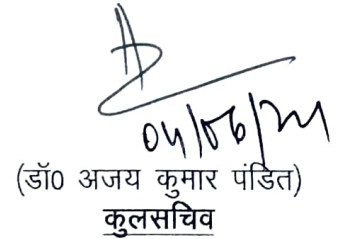 04/06/24
(डॉ0 अजय कुमार पंडित)
कुलसचिव